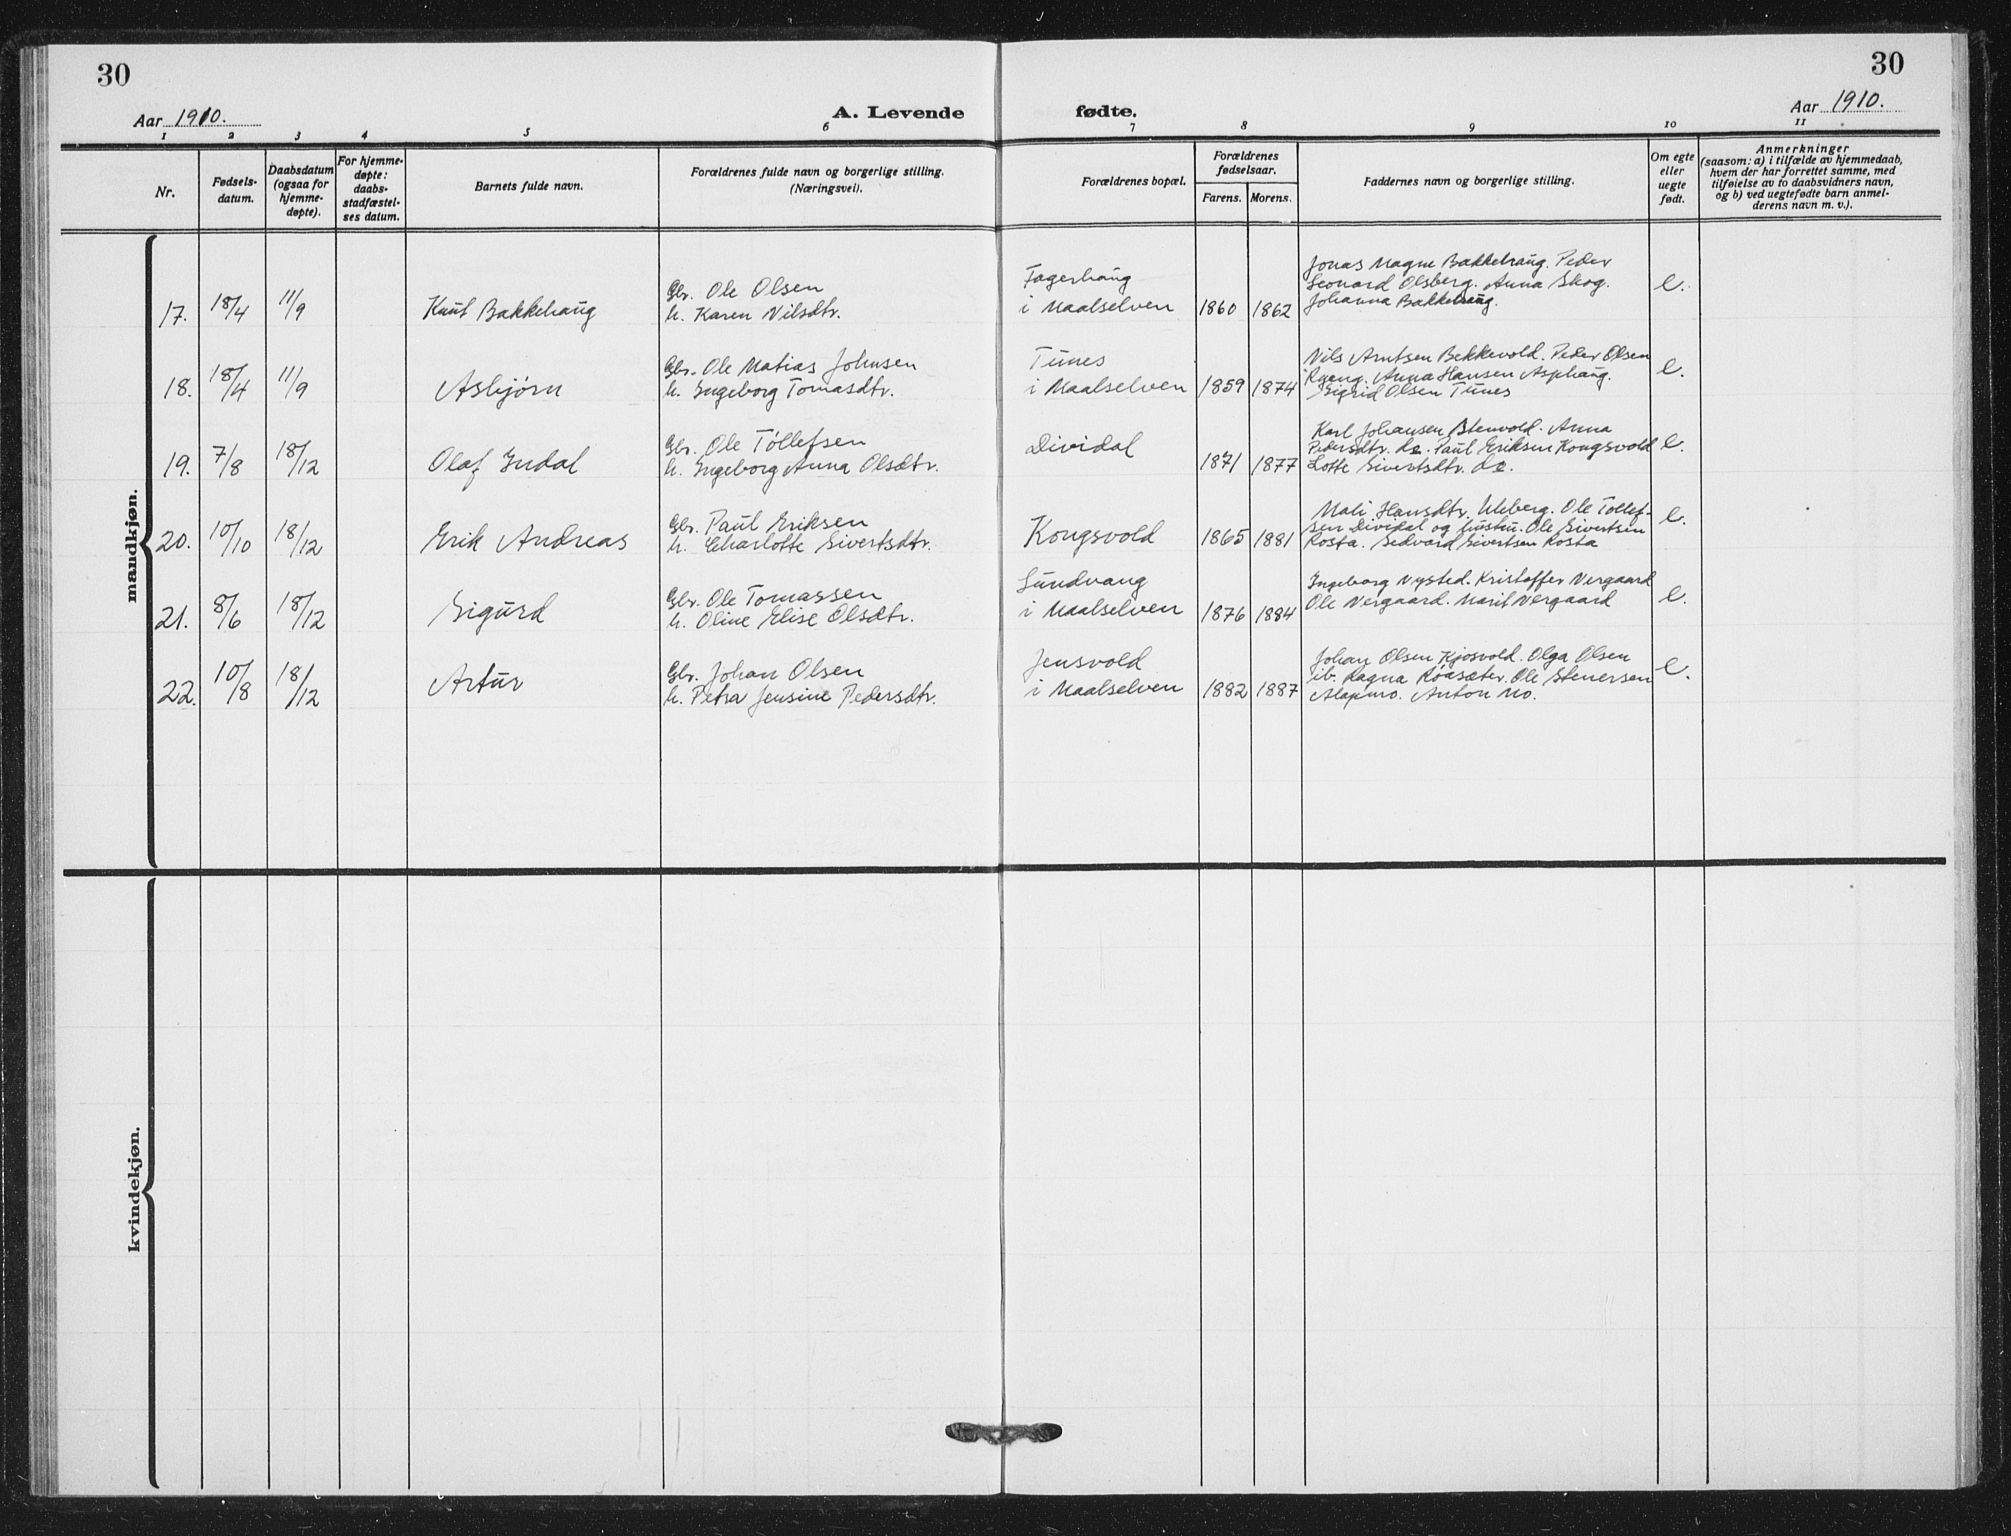 30
30
Aar 1910.
A. Levende fødte.
Aar 1910.
1 2 3 4 5 6 7 8 9 10 11
Nr.
Fødsels-
datum.
Daabsdatum
(ogsaa for
hjemme-
døpte).
For hjemme-
døpte:
daabs-
stadfæstel-
ses datum.
Barnets fulde navn.
Forældrenes fulde navn og borgerlige stilling.
(Næringsvei).
Forældrenes bopæl.
Forældrenes
fødselsaar.
Farens. Morens.
Faddernes navn og borgerlige stilling.
Om egte
eller
uegte
født.
Anmerkninger
(saasom: a) i tilfælde av hjemmedaab,
hvem der har forrettet samme, med
tilføielse av to daabsvidners navn,
og b) ved uegtefødte barn anmel-
derens navn m. v.).
mandkjøn.
17. 18/4 11/9 Knut Bakkehaug
Gbr. Ole Olsen
h. Karen Nilsdtr.
Fagerhaug
i Maalselven
1860 1862
Jonas Magne Bakkehaug. Peder
Leonard Olsberg. Anna Skog.
Johanna Bakkehaug.
e.
18. 18/4 11/9 Asbjørn
Gbr. Ole Matias Johnsen
h. Ingeborg Tomasdtr.
Tunes
i Maalselven
1859 1874
Nils Arntsen Bekkevold. Peder Olsen
Ryeng. Anna Hansen Asphaug.
Sigrid Olsen Tunes
e.
19. 7/8 18/12 Olaf Indal
Gbr. Ole Tollefsen
h. Ingeborg Anna Olsdtr.
Dividal
1871 1877
Karl Johansen Stenvold. Anna
Pedersdtr. do. Paul Eriksen Kongsvold
Lotte Sivertsdtr. do.
e.
20. 10/10 18/12 Erik Andreas
Gbr. Paul Eriksen
h. Charlotte Sivertsdtr.
Kongsvold
1865 1881
Mali Hansdtr. Uleberg. Ole Tollef-
sen Dividal og hustru. Ole Sivertsen
Rosta. Sedvard Sivertsen Rosta
e.
21. 8/6 18/12 Sigurd
Gbr. Ole Tomassen
h. Oline Elise Olsdtr.
Sundvang
i Maalselven
1876 1884
Ingeborg Nysted. Kristoffer Nergaard
Ole Nergaard. Marit Nergaard
e.
22. 10/8 18/12 Artur
Gbr. Johan Olsen
h. Petra Jensine Pedersdtr.
Jensvold
i Maalselven
1882 1887
Johan Olsen Kjosvold. Olga Olsen
ib. Ragna Roasæter. Ole Stenersen
Alapmo. Anton Mo.
e.
kvindekjøn.